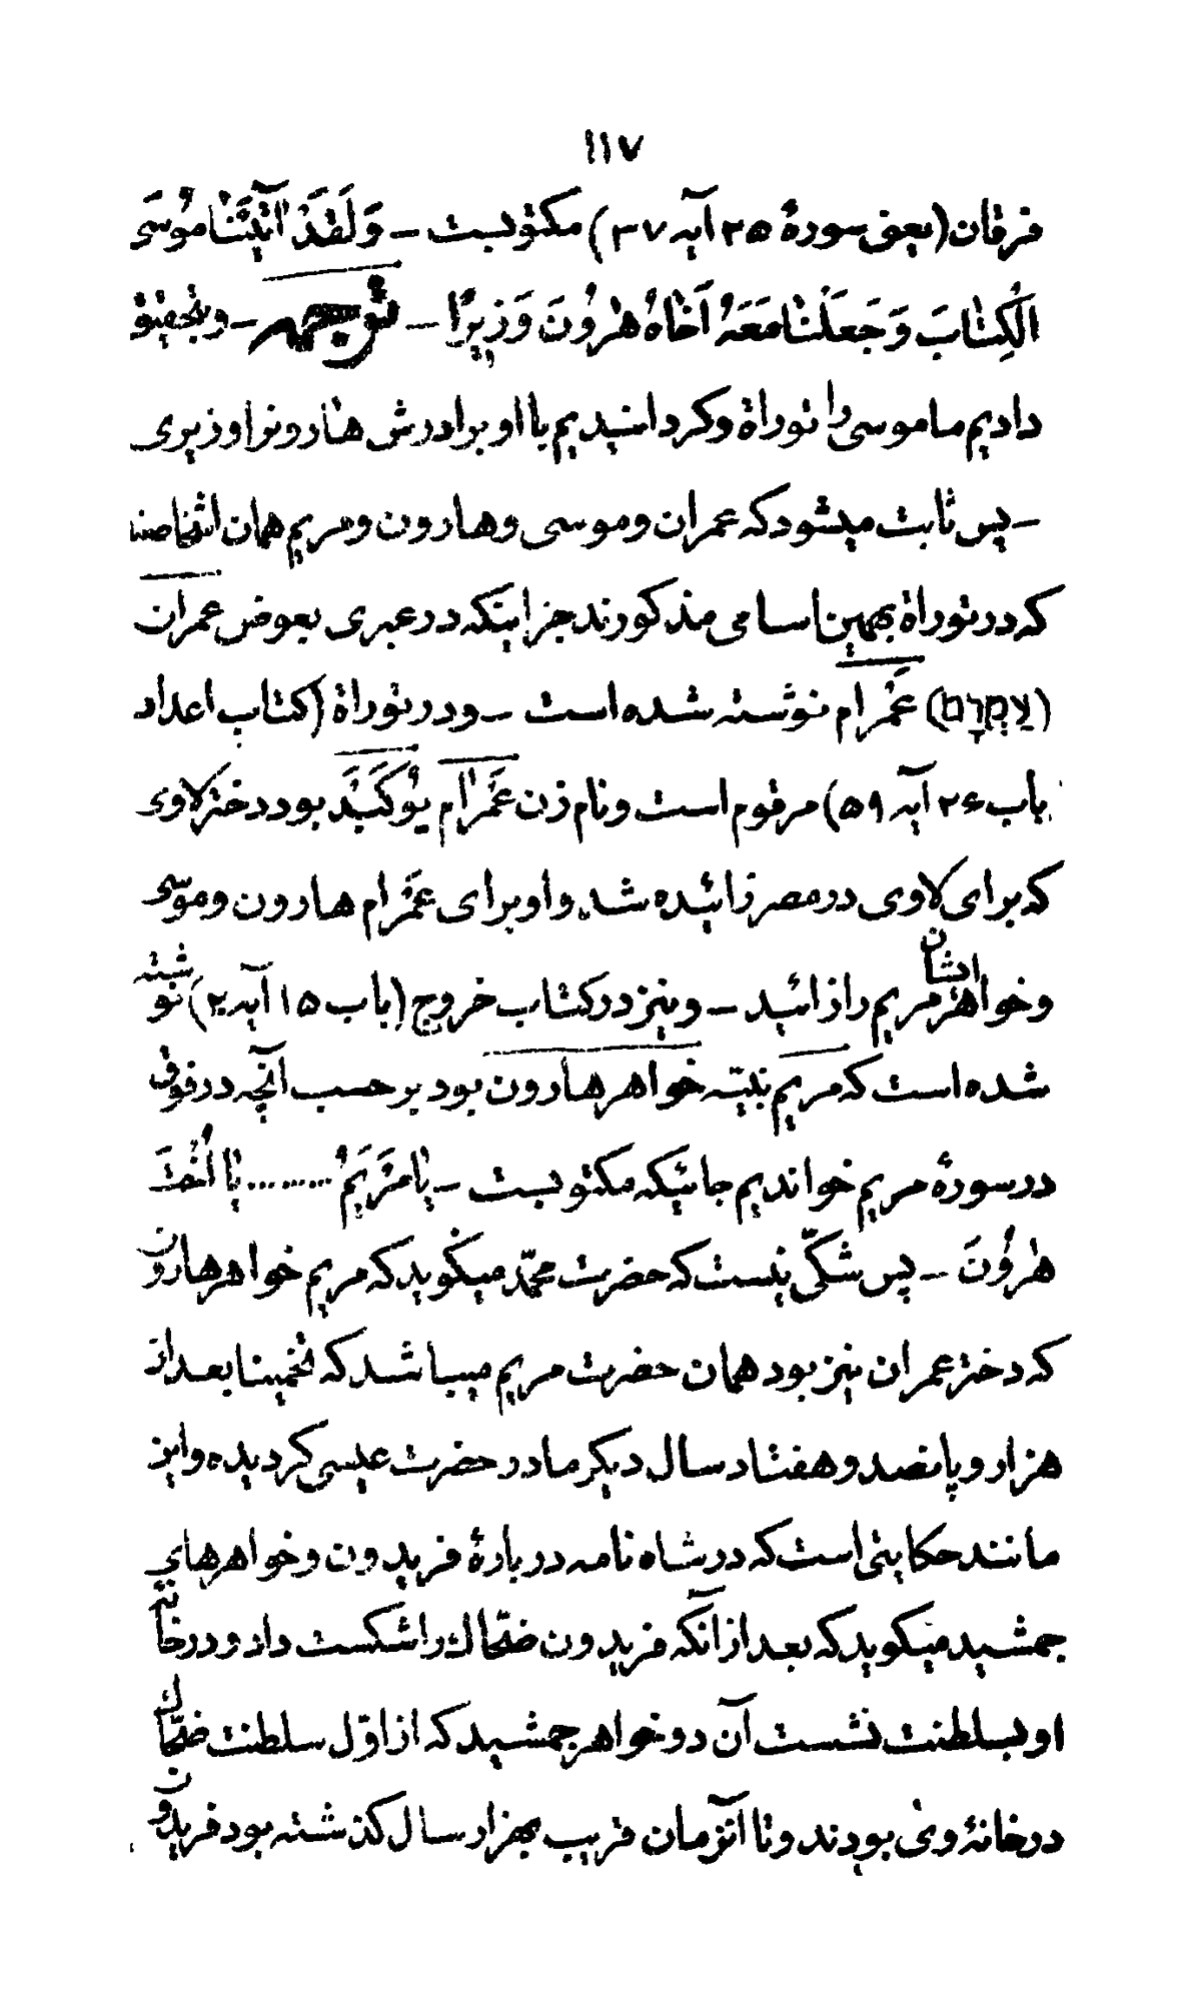 ١١٧
فرقان (یعنی سورهٔ ٢٥ آیه ٣٧) مکتوبست ــ وَلَقَدْ آتَیْنَا مُوسَی
الْکِتٰابَ وَجَعَلْنٰا مَعَهُ اَخٰاهُ هٰرُونَ وَزِیرًا ــ ترجمه ــ وبتحقیق
دادیم ما موسی را توراة وکردانیدیم با او برادرش هارونرا وزیری
ــ پس ثابت میشود که عمران وموسی وهارون ومریم همان اشخاصند
که در توراة بهمین اسامی مذکورند جز اینکه در عبری بعوض عمران
(עַמְרָם) عَمْرام نوشته شده است ــ ودر توراة (کتاب اعداد
باب ٢۶ آیه ٥٩) مرقوم است ونام زن عَمْرٰام یُوکَبَد بود دختر لاوی
که برای لاوی در مصر زائیده شد واو برای عَمْرام هارون وموسی
وخواهر ایشان مریم را زائید ــ ونیز در کتاب خروج (باب ١٥ آیه ٢٠) نوشته
شده است که مریم نبیّه خواهر هارون بود بر حسب آنچه در فوق
در سورهٔ مریم خواندیم جائیکه مکتوبست ــ یٰا مَرْیَمُ ........ یٰا اُخْتَ
هٰرُونَ ــ پس شکّی نیست که حضرت محمّد میکوید که مریم خواهر هارون
که دختر عمران نیز بود همان حضرت مریم میباشد که تخمینا بعد از
هزار و پانصد و هفتاد سال دیکر مادر حضرت عیسی کردیده واین
مانند حکایتی است که در شاه نامه در بارهٔ فریدون وخواهرهای
جمشید میکوید که بعد از آنکه فریدون ضحّاك را شکست داد ودر خانهٔ
او بسلطنت نشست آن دو خواهر جمشید که از اوّل سلطنت ضحّاك
در خانهٔ وی بودند وتا آنزمان قریب بهزار سال کذشته بود فریدون